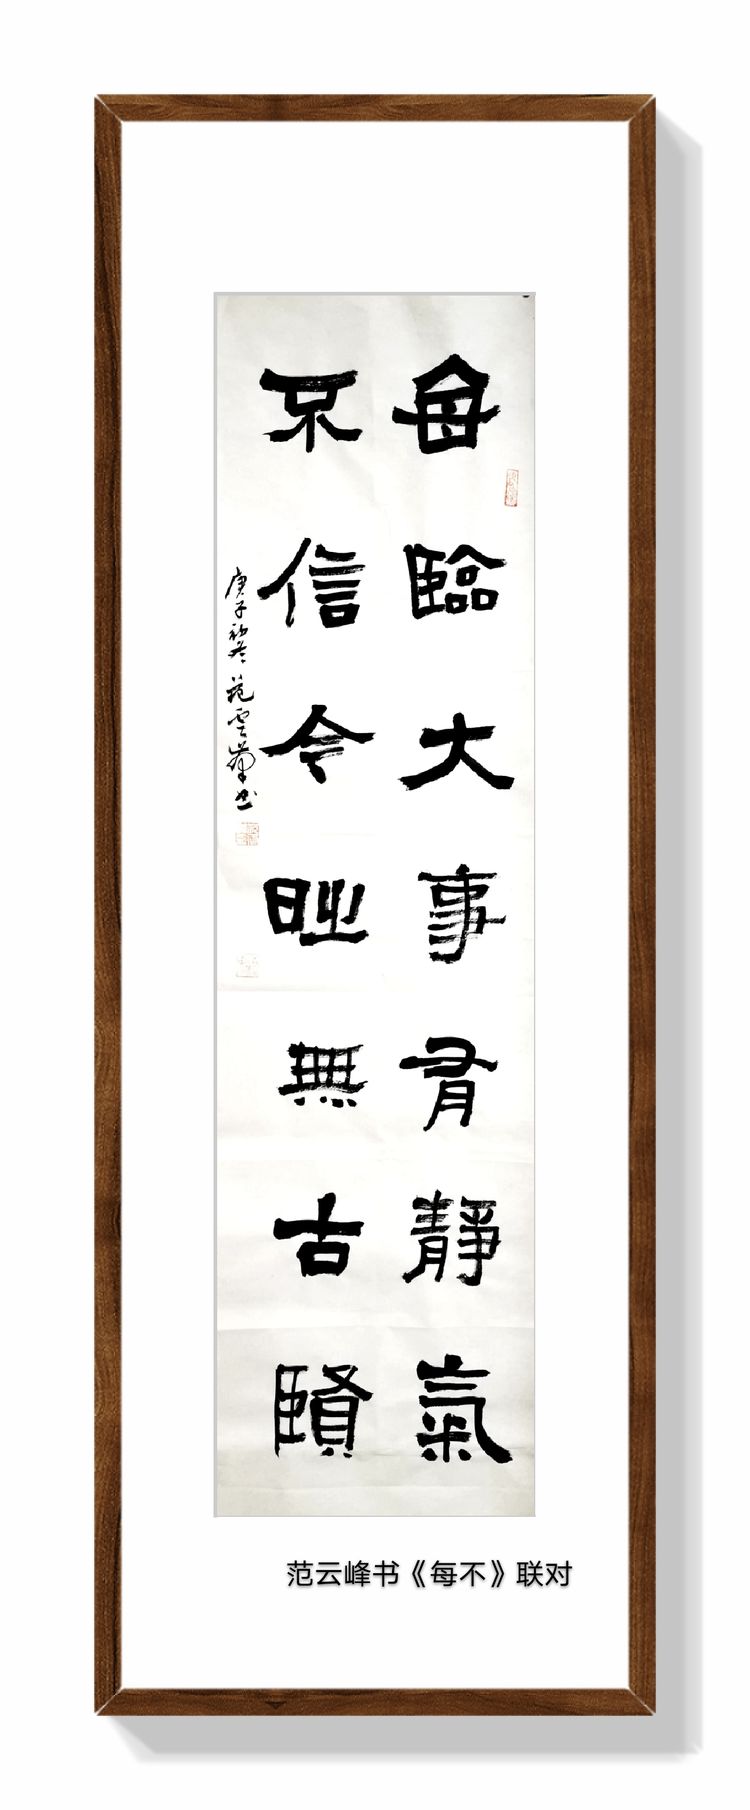 每臨大事有靜氣
不信今時無古賢
庚子初冬范雲峯书
范云峰书《每不》联对